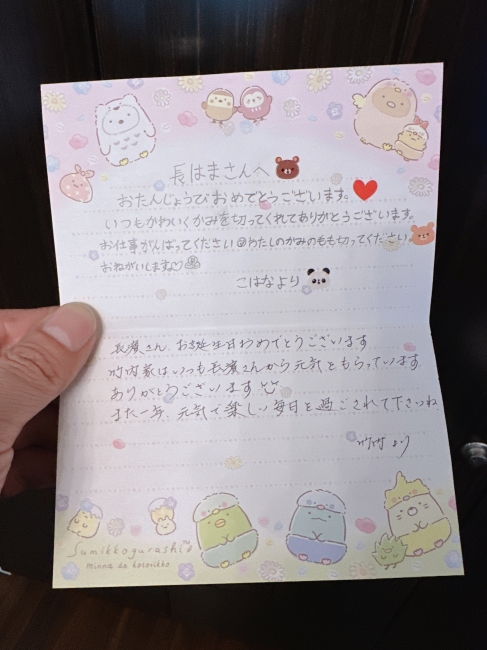 長はまさんへ
おたんじょうびおめでとうございます。
いつもかわいくかみを切ってくれてありがとうございます。
お仕事がんばってください わたしのかみのもも切ってください。
おねがいします♡
こはなより
長濱さん、お誕生日おめでとうございます
竹内家はいつも長濱さんから元気をもらっています
ありがとうございます
また一年、元気で楽しい毎日を過ごされて下さいね
竹内より
Sumikkogurashi™
minna de kosorikko